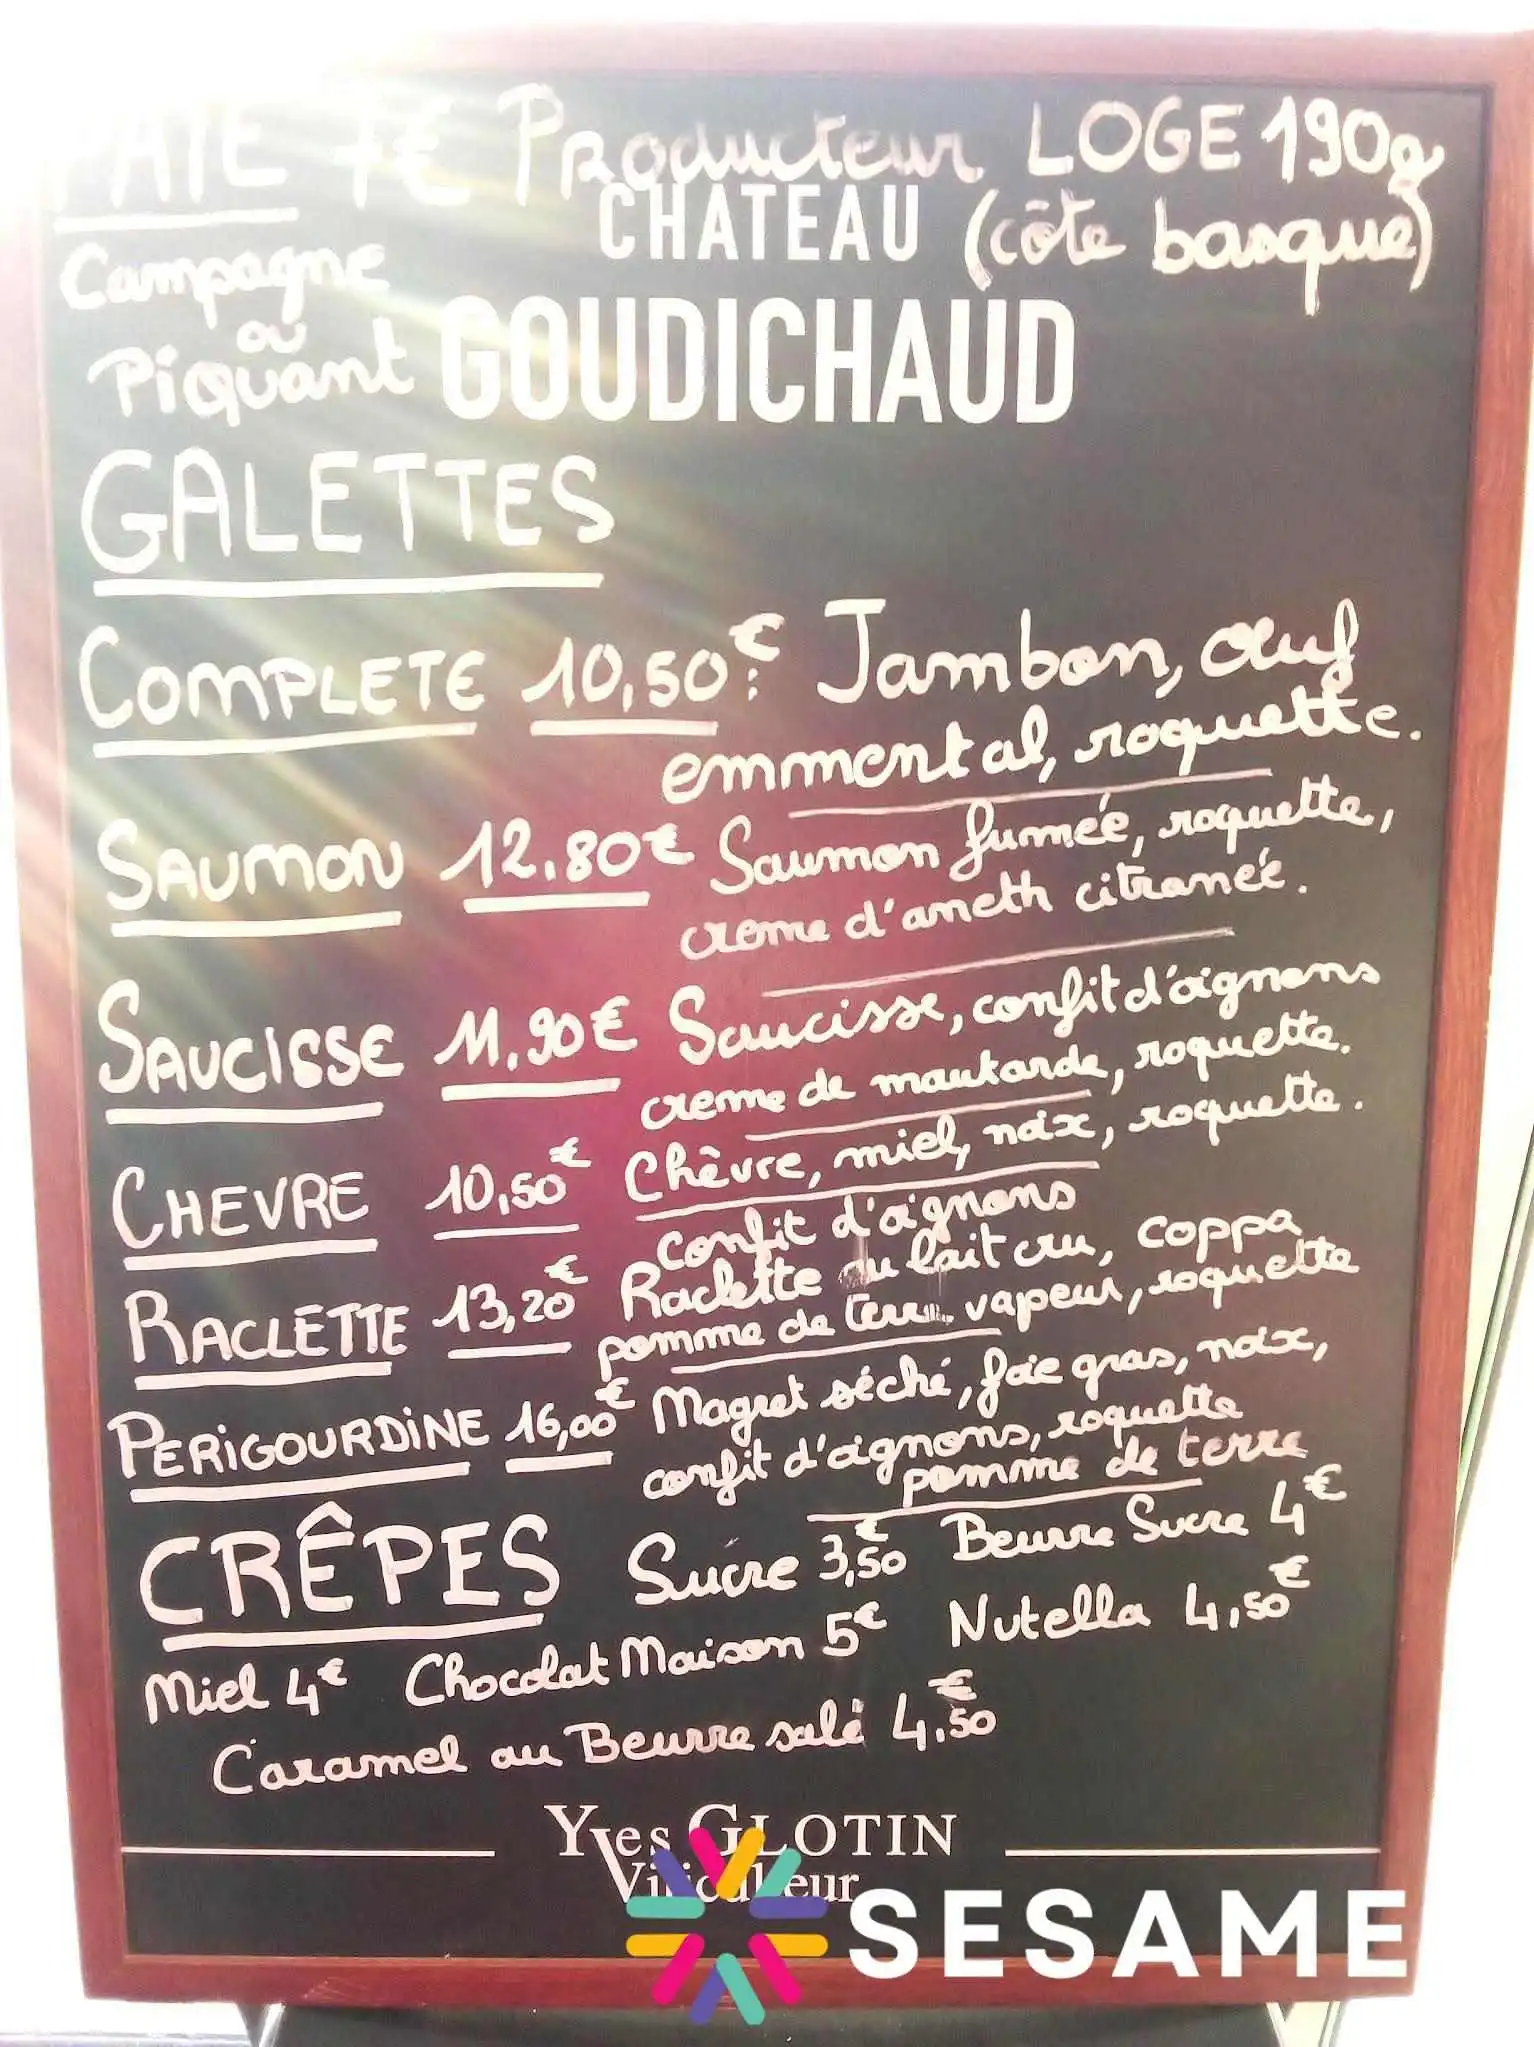 PATE 7€ Producteur LOGE 190g
CHATEAU (côte basque)
Campagne
ou
Piquant
GOUDICHAUD
GALETTES
COMPLETE 10,50€: Jambon, œuf
emmental, roquette.
SAUMON 12,80€ Saumon fumée, roquette,
creme d'aneth citronée.
SAUCISSE 11,90€ Saucisse, confit d'oignons
creme de moutarde, roquette.
CHEVRE 10,50€ Chèvre, miel, noix, roquette.
confit d'oignons
RACLETTE 13,20€ Raclette au lait cru, coppa
pomme de terre vapeur, roquette
PERIGOURDINE 16,00€ Magret séché, foie gras, noix,
confit d'oignons, roquette
pomme de terre
CRÊPES Sucre 3,50€ Beurre Sucre 4€
Miel 4€ Chocolat Maison 5€ Nutella 4,50€
Caramel au Beurre salé 4,50€
Yves GLOTIN
Viticulteur
SESAME